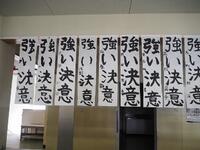 強い決意
強い決意
強い決意
強い決意
強い決意
強い決意
強い決意
強い決意
強い決意